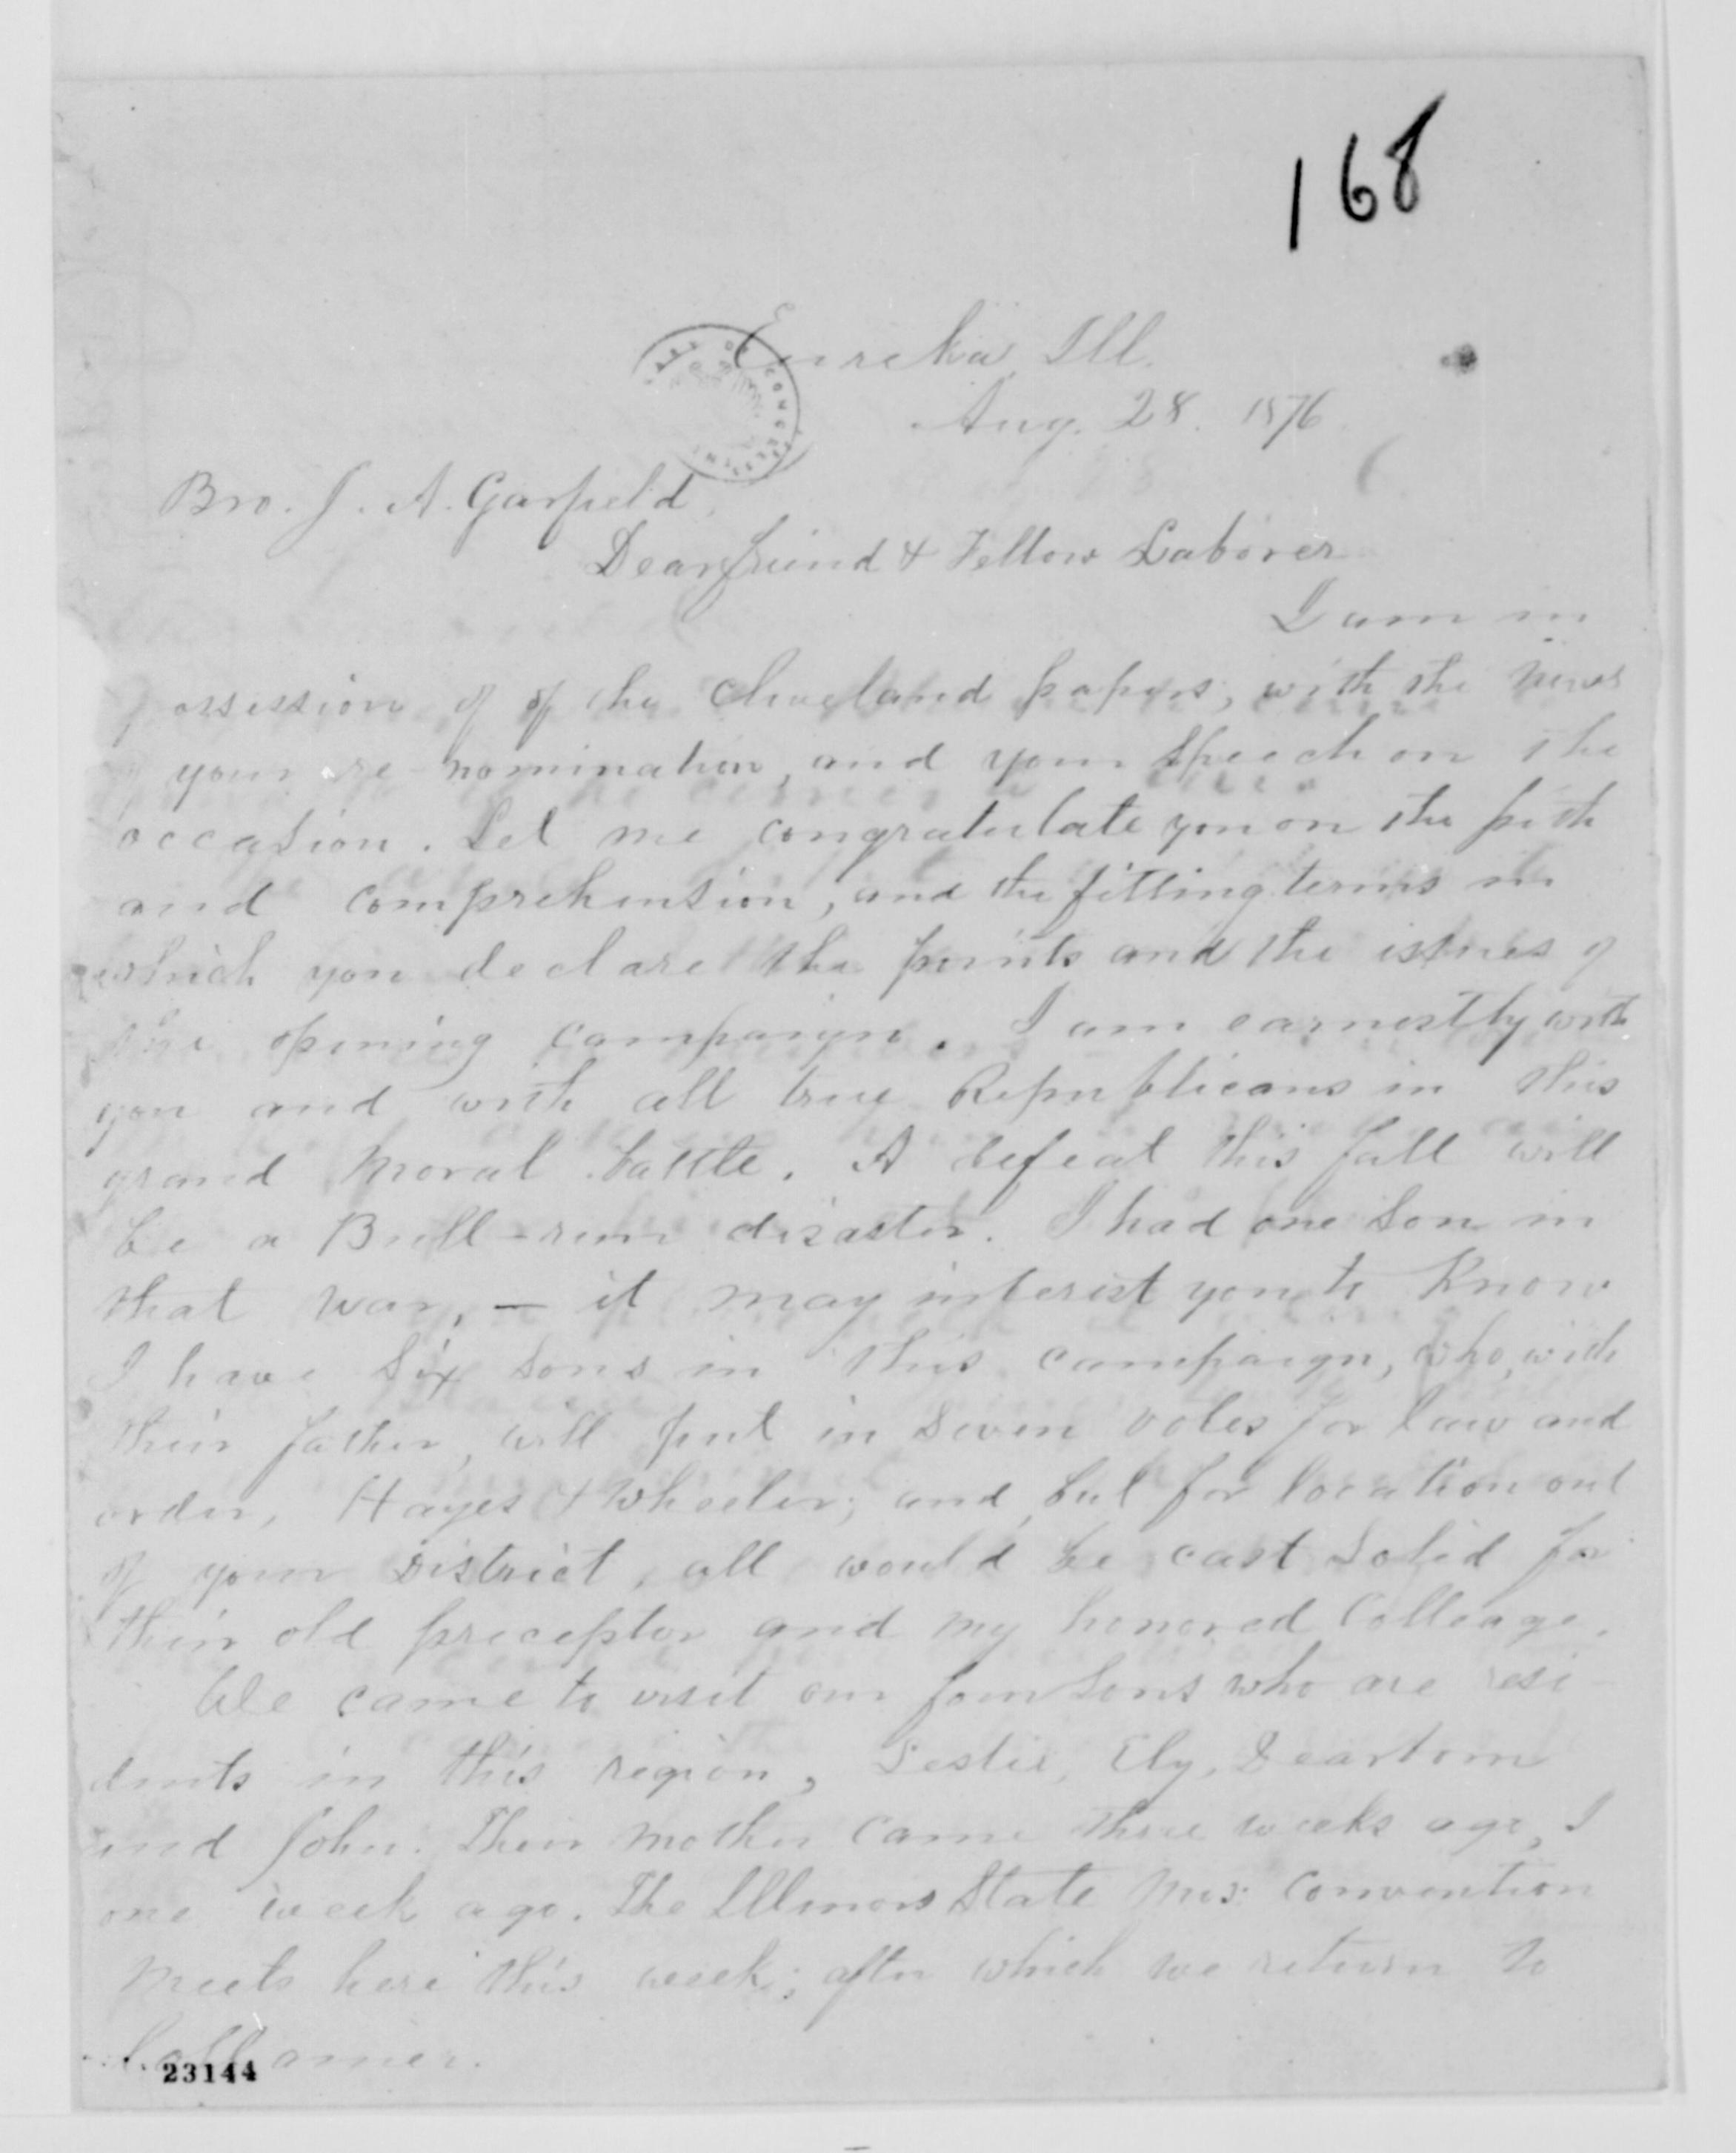 168
Eureka, Ill.
Aug. 28. 1876
Bro. J. A. Garfield,
Dear friend & Fellow Laborer
I am in
possession of of the Cleveland papers, with the news
of your re-nomination, and your speech on the
occasion. Let me congratulate you on the pith
and comprehension, and the fitting terms in
which you declare the points and the issues of
the opening campaign. I am earnestly with
you and with all true Republicans in this
grand moral battle. A defeat this fall will
be a Bull-run disaster. I had one son in
that war, — it may interest you to know
I have six sons in this campaign, who, with
their father, will put in seven votes for law and
order, Hayes & Wheeler; and, but for location out
of your district, all would be cast solid for
their old preceptor and my honored Colleage.
We came to visit our four sons who are resi-
dents in this region, Leslie, Ely, Dearborn
and John. Their mother came three weeks ago, I
one week ago. The Illinois State Mis: Convention
meets here this week; after which we return to
Collamer.
23144